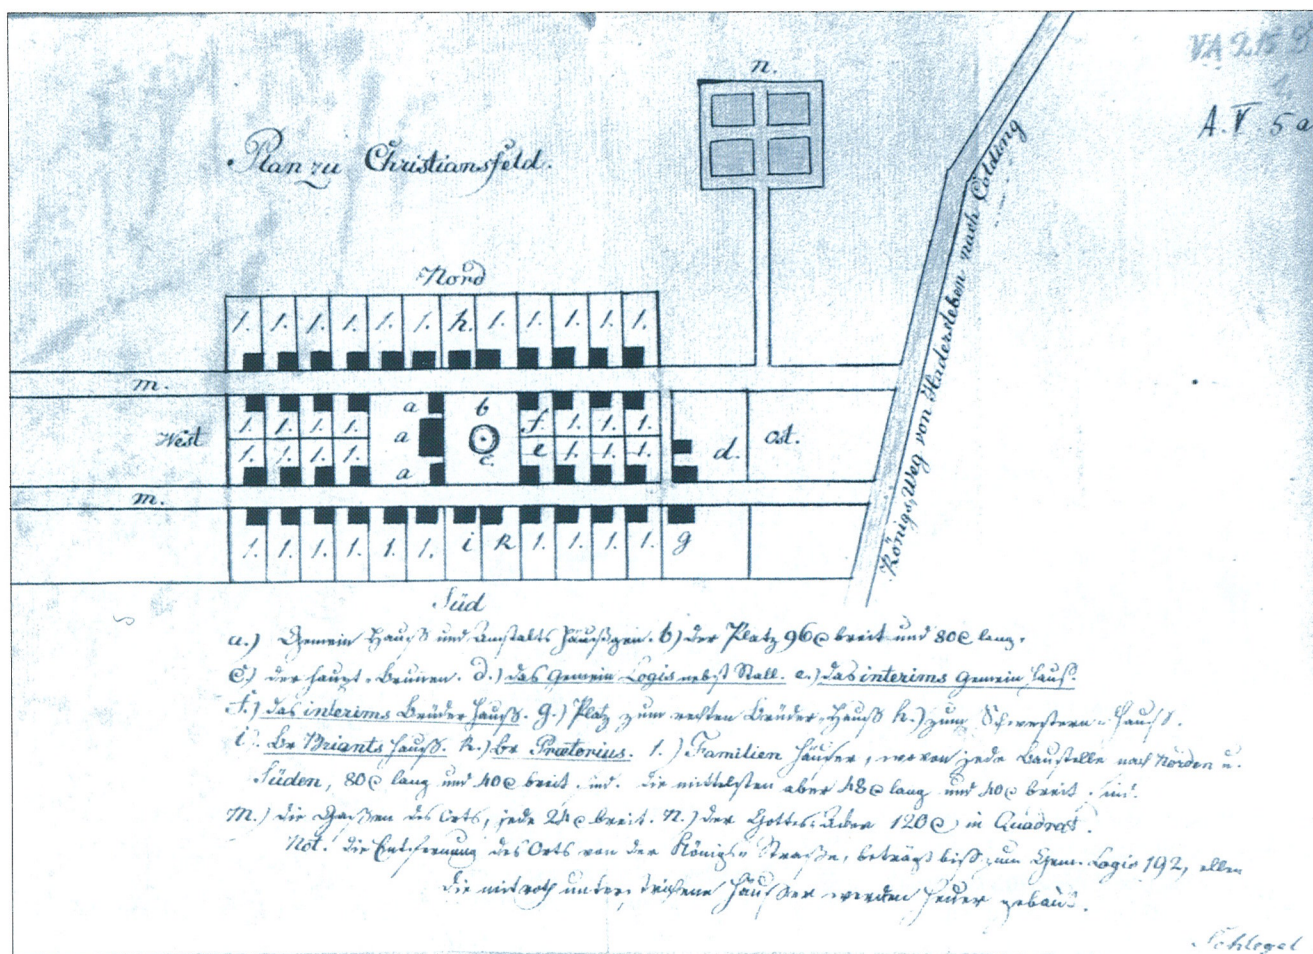 VA 215
A. V. 5 a
n.
Plan zu Christiansfeld.
Königs Weg von Hadersleben nach Colding
Nord
1. 1. 1. 1. 1. 1. h. 1. 1. 1. 1. 1.
m.
a b
1. 1. 1. 1. a f. 1. 1. 1.
West c. d. Ost.
1. 1. 1. 1. a e 1. 1. 1.
m.
1. 1. 1. 1. 1. 1. i k 1. 1. 1. 1. g
Süd
a.) Gemein Hauß und Anstalts Häußgen. b) der Platz 96 e breit und 80 e lang.
c.) der Haupt-Brunnen. d.) das Gemein Logis nebst Stall. e.) das interims Gemein Hauß.
f.) das interims Brüder Hauß. g.) Platz zum rechten Brüder-Hauß h.) zum Schwestern-Hauß.
i. Br Briants Hauß. k.) br Prætorius. 1.) Familien Häuser, wovon jede Baustelle nach Norden u.
Süden, 80 e lang und 40 e breit sind. die mittelsten aber 48 e lang und 40 e breit sind.
m.) die Gassen des Orts, jede 24 e breit. n.) der Gottes-Acker 120 e in Quadrat.
Not. die Entfernung des Orts von der Königs Straße, beträgt biß zum Gem. Logis 192, ellen
die mit roth unterstrichene Häuser werden heuer gebaut.
Schlegel